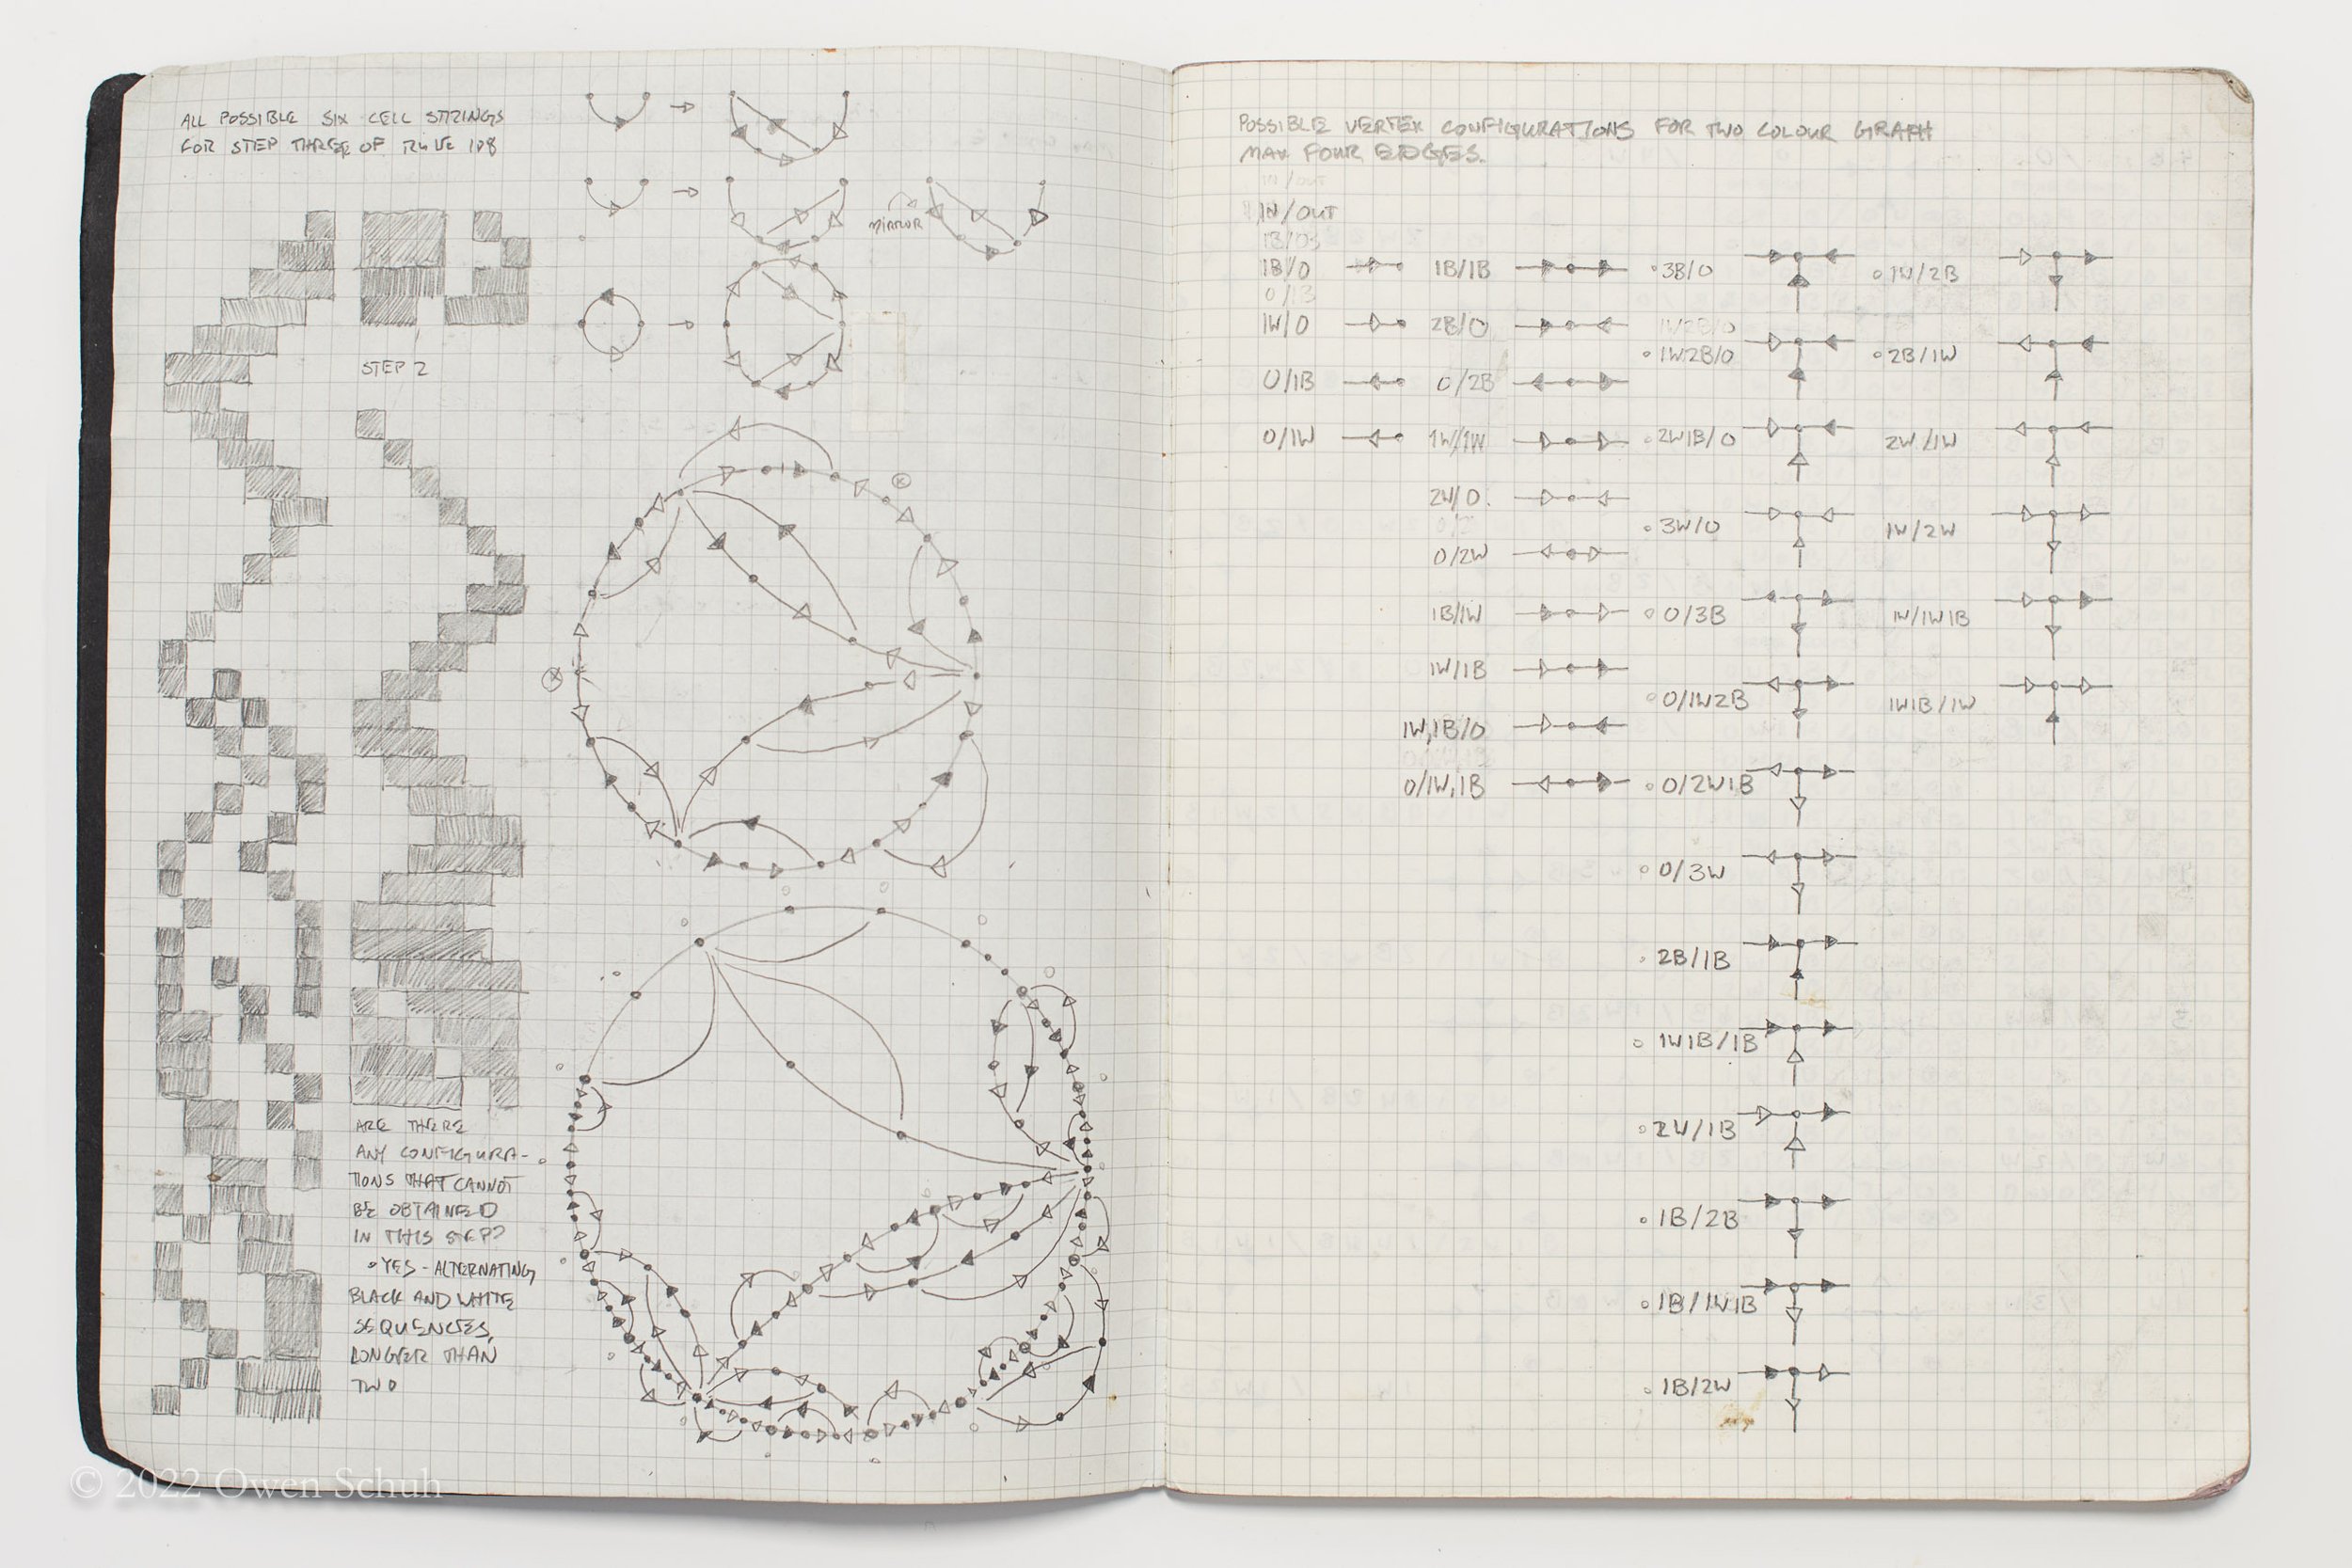 ALL POSSIBLE SIX CELL STRINGS
FOR STEP THREE OF RULE 108
STEP 2
MIRROR
ARE THERE
ANY CONFIGURA-
TIONS THAT CANNOT
BE OBTAINED
IN THIS STEP?
•YES - ALTERNATING
BLACK AND WHITE
SEQUENCES,
LONGER THAN
TWO
© 2022 Owen Schuh
POSSIBLE VERTEX CONFIGURATIONS FOR TWO COLOUR GRAPH
MAX FOUR EDGES.
IN/OUT
IN/OUT
1B/0
1W/0
0/1B
0/1W
1B/1B
2B/0
0/2B
1W/1W
2W/0.
0/2W
1B/1W
1W/1B
1W,1B/0
0/1W,1B
3B/0
1W2B/0
1W2B/0
2W1B/0
3W/0
0/3B
0/1W2B
0/2W1B
0/3W
2B/1B
1W1B/1B
2W/1B
1B/2B
1B/1W1B
1B/2W
1W/2B
2B/1W
2W/1W
1W/2W
1W/1W1B
1W1B/1W